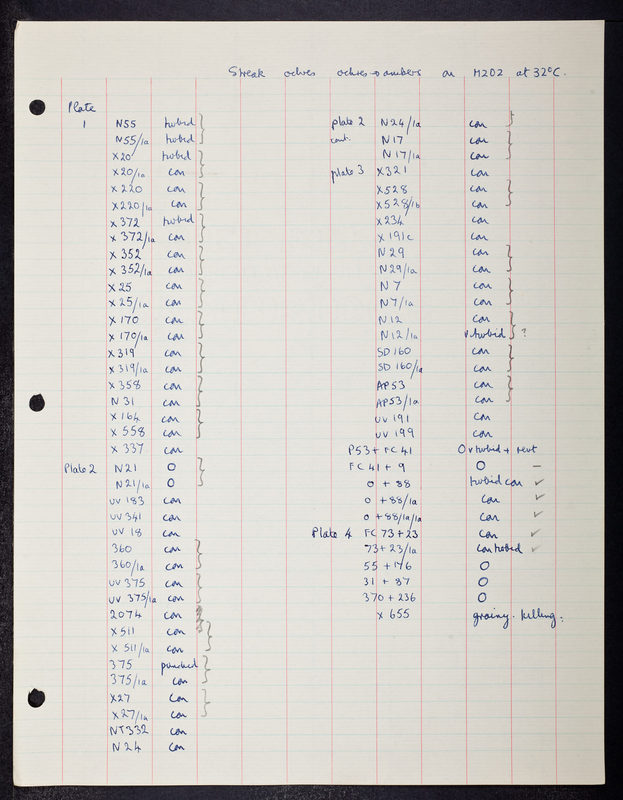 Streak ochres ochres → ambers on H2O2 at 32°C.
Plate
1 N55 turbid
N55/1a turbid
X20 turbid
X20/1a con
X220 con
X220/1a con
X372 turbid
X372/1a con
X352 con
X352/1a con
X25 con
X25/1a con
X170 con
X170/1a con
X319 con
X319/1a con
X358 con
N31 con
X164 con
X558 con
X337 con
Plate 2 N21 O
N21/1a O
UV 183 con
UV 341 con
UV 18 con
360 con
360/1a con
UV 375 con
UV 375/1a con
2074 con
X511 con
X511/1a con
375 punched
375/1a con
X27 con
X27/1a con
NT332 con
N24 con
plate 2 N24/1a con
cont. N17 con
N17/1a con
plate 3 X321 con
X528 con
X528/1b con
X234 con
X191c con
N29 con
N29/1a con
N7 con
N7/1a con
N12 con
N12/1a v. turbid ?
SD160 con
SD160/1a con
AP53 con
AP53/1a con
UV 191 con
UV 199 con
P53 + FC41 O v turbid + revt
FC41 + 9 O —
0 + 88 turbid con ✓
0 + 88/1a con ✓
0 + 88/1a/1a con ✓
Plate 4 FC 73 + 23 con ✓
73 + 23/1a con turbid ✓
55 + 176 O
31 + 87 O
370 + 236 O
X 655 grainy. killing.